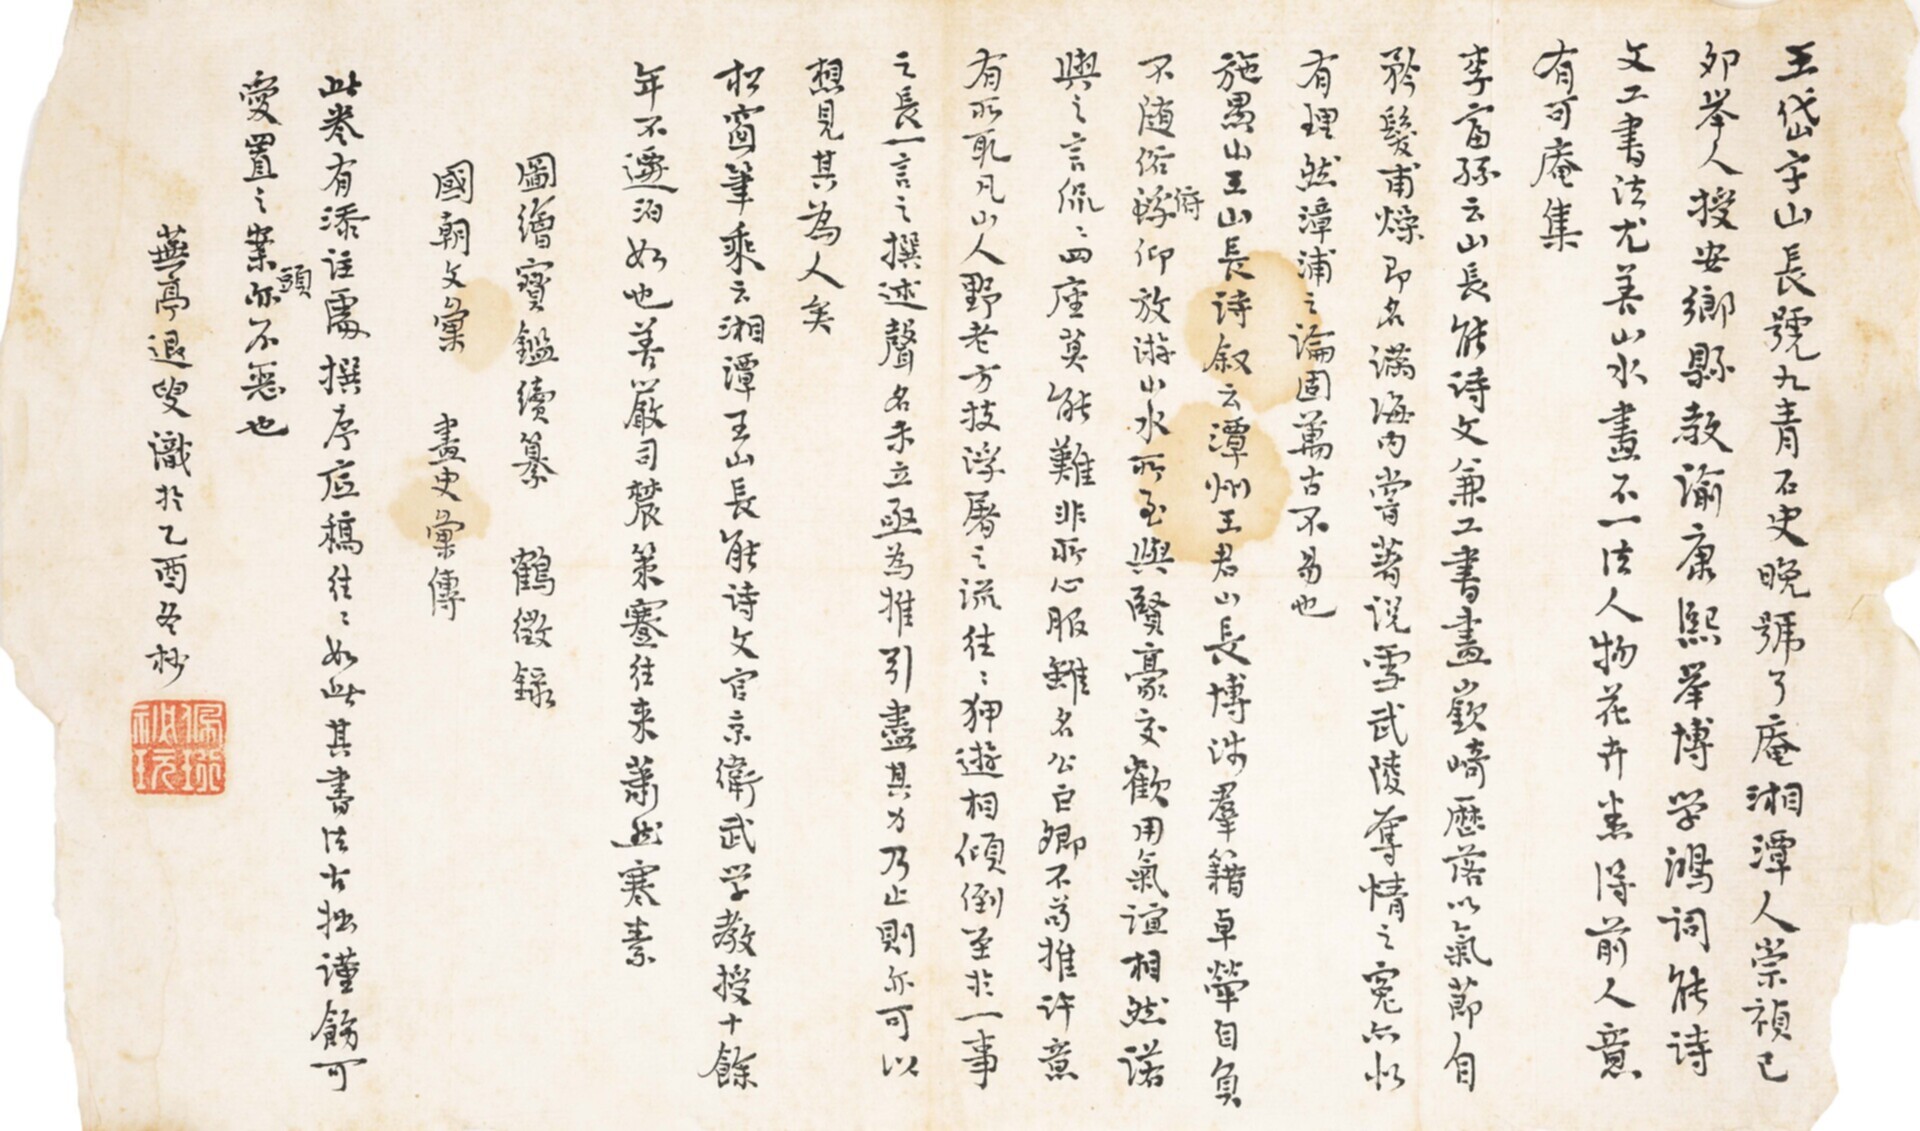 王岱字山長號九青石史晚號了庵湘潭人崇禎己
卯举人授安鄉縣教諭康熙举博学鴻詞能诗
文工書法尤善山水畫不一法人物花卉悉得前人意
有可庵集
李富孫云山長能诗文兼工書畫嶔崎歷落以氣節自
矜髮甫燥即名滿海内嘗著说雪武陵奪情之冤亦似
有理然漳浦之論固萬古不易也
施愚山王山長诗叙云潭州王君山長博涉羣籍卓犖自負
不随俗俯仰放游山水所至與賢豪交歡用氣誼相然诺
與之言侃〻四座莫能難非所心服雖名公巨卿不苟推许意
有所取凡山人野老方技浮屠之流往〻狎遊相傾倒至於一事
之長一言之撰述聲名未立亟為推引盡其力乃止則亦可以
想見其為人矣
松窗筆乘云湘潭王山長能诗文官京衛武学教授十餘
年不遷泊如也善嚴司農策蹇往来萧然寒素
圖繪寳鑑續纂 鶴徵録
國朝文彙 畫史彙傳
此卷有添注處撰序應稿往〻如此其書法古拙谨飭可
愛置之案頭亦不惡也
蕪亭退叟識於乙酉冬杪